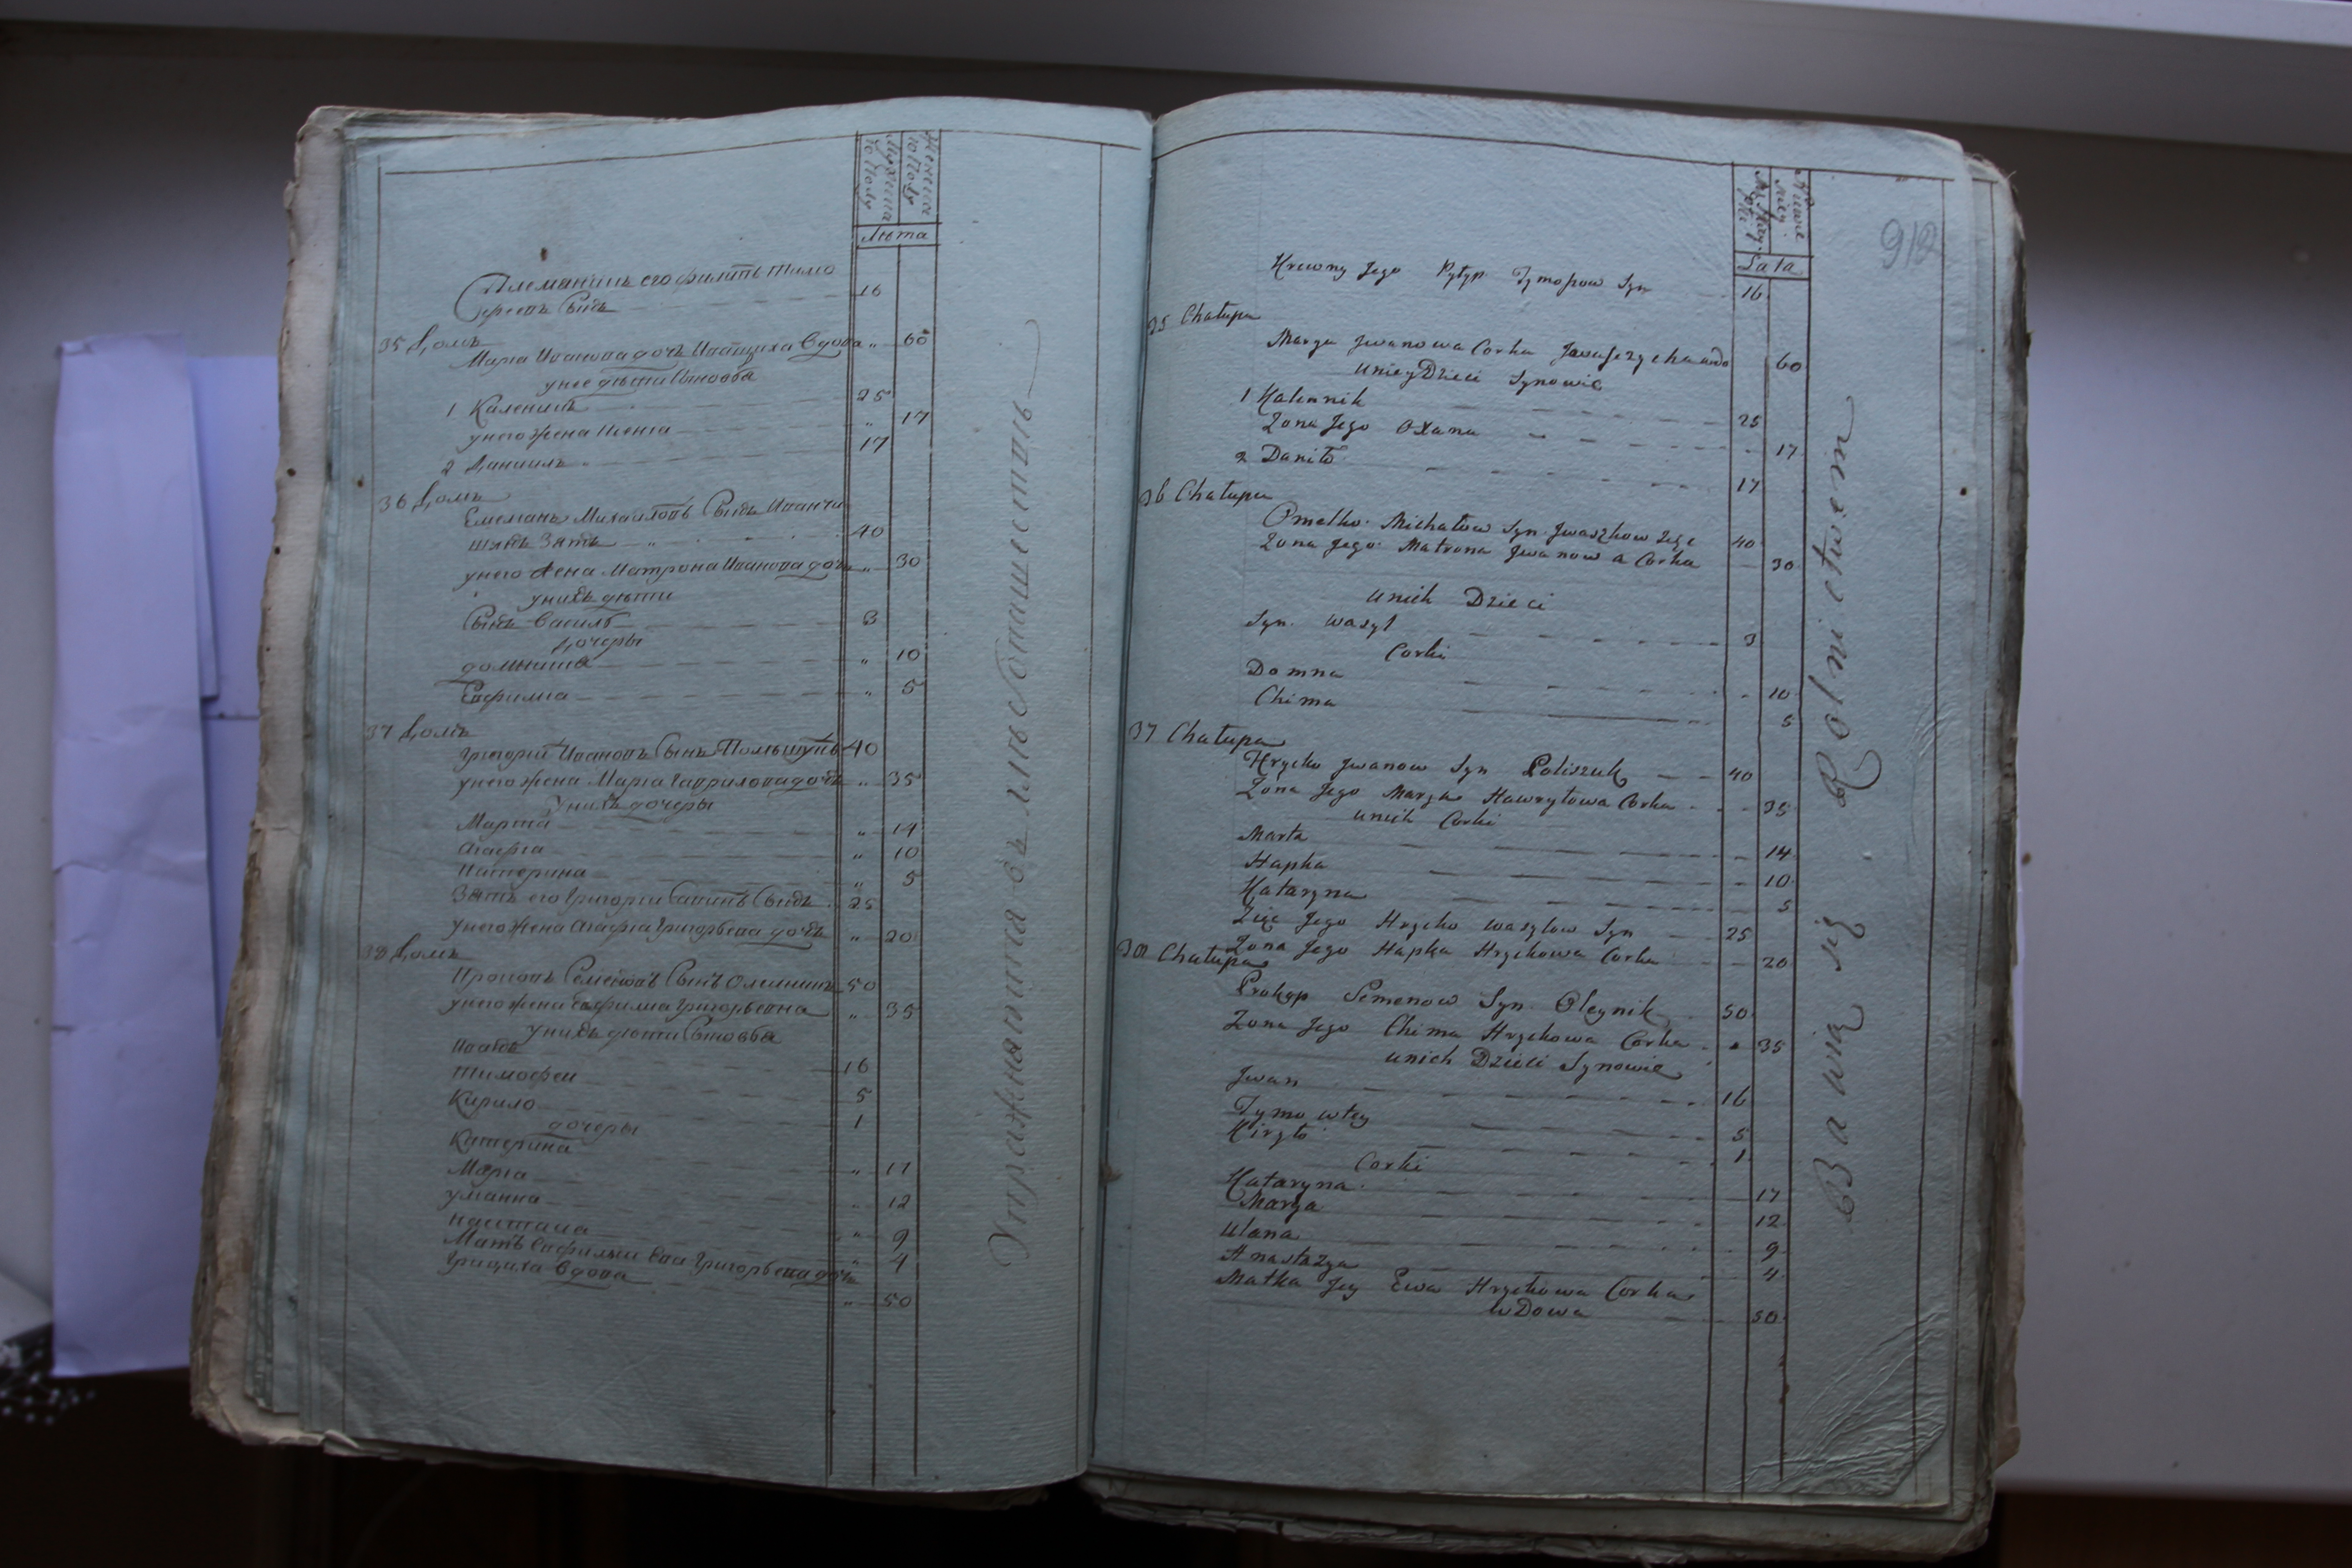 Мужеска
го полу
Женска
го полу
Лѣта
Племянникъ его Филипъ Тимо
фѣевъ Сынъ 16
35 Домъ
Мариа Иванова дочь Иващиха Вдова „ 60
у нее дѣти Сыновья
1 Каленикъ 25
у него жена Ксенiа „ 17
2 Даниилъ 17
36 Домъ
Емельянъ Михаиловъ Сынъ
Зять 40
у него жена Матрона Иванова дочь „ 30
у нихъ дѣти
Сынъ Василь 3
Дочеры
Домникиа „ 10
Евфимиа „ 5
37 Домъ
Григорий Ивановъ Сынъ Полищукъ 40
у него жена Мариа Гаврилова дочь „ 35
у нихъ дочеры
Марта „ 14
Агафиа „ 10
Катерина „ 5
Зять его Григории Сынъ 25
у него жена Агафиа Григорьева дочь „ 20
38 Домъ
Прокопъ Семеновъ Сынъ Олеиникъ 50
у него жена Евфимиа Григорьевна „ 35
у нихъ дѣти Сыновья
Иванъ 16
Тимофеи 5
Кирило 1
дочеры
Катерина „ 17
Мариа „ 12
Улианна „ 9
Настасиа „ 4
Мать Евфимии Ева Григорьева дочь
Грициха Вдова „ 50
Упражняются въ хлѣбопашествѣ
912
Lata
Krewny Jego Pylyp Tymoszow Syn 16
35 Chałupa
Marya Jwanowa Corka Jwaszczycha wdo 60
u niey Dzieci Synowie
1 Kalennik 25
Zona Jego Oxana 17
2 Daniło 17
36 Chałupa
Omelko Michałow Syn Jwaszkow Zięć 40
Zona Jego Matrona Jwanowa Corka 30
u nich Dzieci
Syn Wasyl 3
Corki
Domna 10
Chima 5
37 Chałupa
Hrycko Jwanow Syn Poliszuk 40
Zona Jego Marya Hawryłowa Corka 35
u nich Corki
Marta 14
Hapka 10
Kataryna 5
Zięć Jego Hrycko Wasylow Syn 25
Zona Jego Hapka Hryckowa Corka 20
38 Chałupa
Prokop Semenow Syn Oleynik 50
Zona Jego Chima Hryckowa Corka 35
u nich Dzieci Synowie
Jwan 16
Tymowtey 5
Kiryło 1
Corki
Kataryna 17
Marya 12
Ulana 9
Anastazya 4
Matka Jey Ewa Hryckowa Corka
wDowa 50
Bawią się Rolnictwem